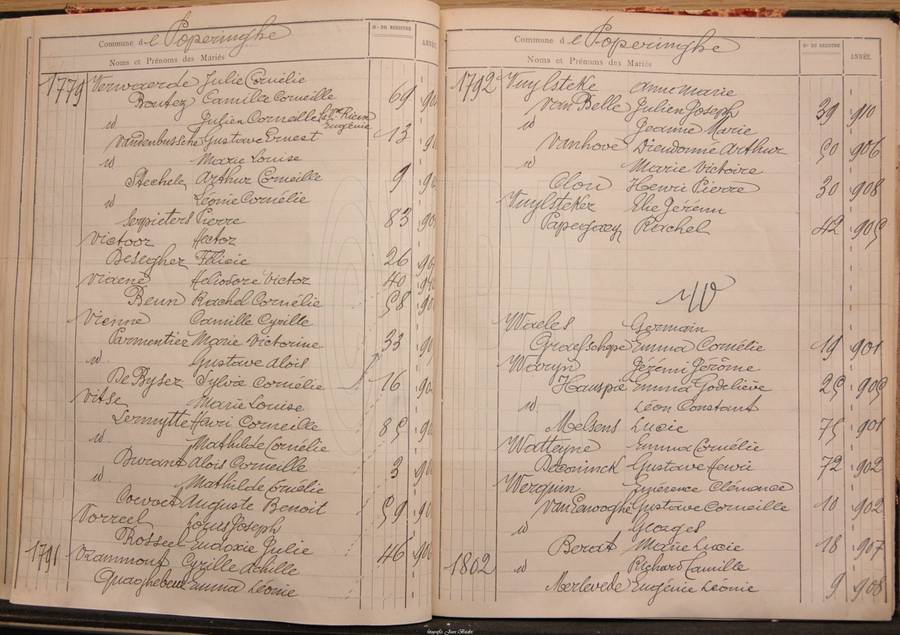 Commune de Poperinghe
Nº DU REGISTRE
Noms et Prénoms des Mariés
1779 Verwaerde Julie Cornélie
Boutez Camille Corneille 69
id Julien Corneille
Eugénie
Vandenbussche Gustave Ernest 13
id Marie Louise
Stechele Arthur Corneille 9
id Léonie Cornélie
Serpieters Pierre 83
Victoor Hector
Deseghher Félicie 26
Viaene Héliodore Victor 40
Beun Rachel Cornélie 58
Vienne Camille Cyrille
Parmentier Marie Victorine 33
id Gustave Aloïs
De Byser Sylvie Cornélie 16
Vitse Marie Louise
Lermytte Henri Corneille 85
id Mathilde Cornélie
Durant Aloïs Corneille 3
id Mathilde Cornélie
Auguste Benoit 59
Louis Joseph
Rosseel Eudoxie Julie 46
1791 Vrammout Cyrille Achille
Quaghebeur Emma Léonie
Commune de Poperinghe
Nº DU REGISTRE
ANNÉE
Noms et Prénoms des Mariés
1792 Vuylsteke Anne Marie
Van Belle Julien Joseph 39 910
id Jeanne Marie
Vanhove Dieudonné Arthur 50 906
id Marie Victoire
Clou Henri Pierre 30 908
Vuylsteker Elie Jérémi
Papegaey Rachel 42 905
W
Waeles Germain
Graefschepe Emma Cornélie 19 901
Waryn Jérémi Jérôme
Hauspie Emma Godelieve 25 905
id Léon Constant
Melsens Lucie 75 901
Watteyne Emma Cornélie
Deconinck Gustave Henri 72 902
Werquin Clémence
Van Eenooghe Gustave Corneille 10 902
id Georges
Berat Marie Lucie 18 907
1802 id Richard Camille
Merlevede Eugénie Léonie 9 908